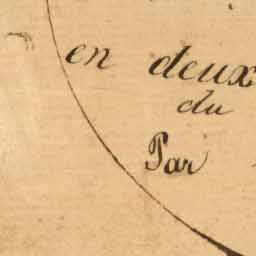 en deux
du
Par